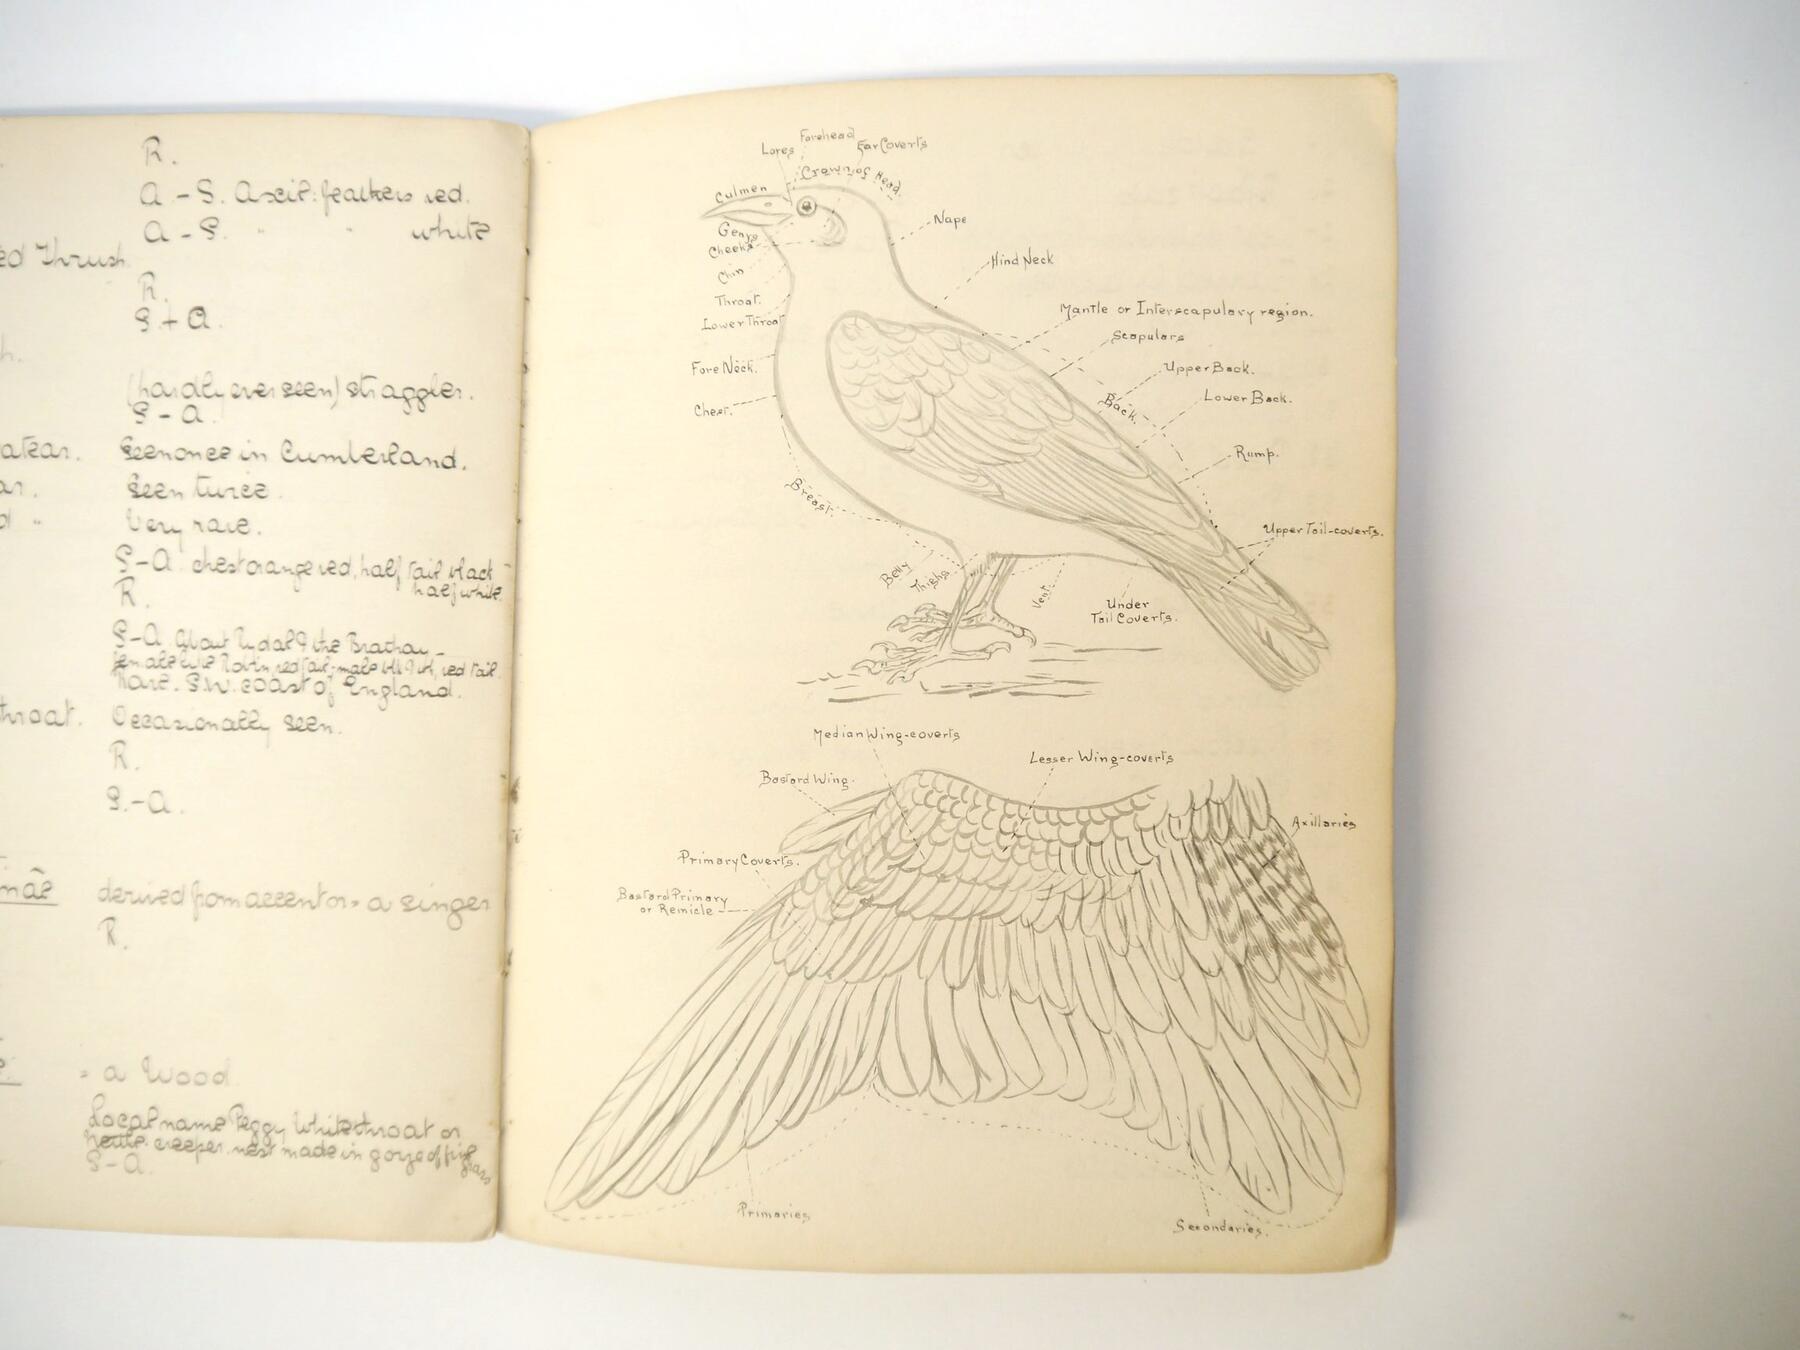 R.
A - S. Axil: feathers red.
A - S. " " white
ed Thrush.
R.
S + A.
h.
(hardly ever seen) straggler.
S - A.
atear. Seen once in Cumberland.
ar. Seen twice.
d " Very rare.
S - A. chest orange red, half tail black -
half white.
R.
S - A. About Rydal & the Brathay -
female like Robin, red tail - male blk & wh, red tail.
Rare. S.W. coast of England.
throat. Occasionally seen.
R.
S. - A.
inæ derived from accentor = a singer
R.
= a Wood.
Local name Peggy Whitethroat or
nettle creeper. nest made in gorse of fine
grass
S - A.
Forehead
Lores
Ear Coverts
Crown of Head.
Culmen
Nape
Genys
Cheeks
Hind Neck
Chin
Throat.
Lower Throat
Mantle or Interscapulary region.
Scapulars
Fore Neck.
Upper Back.
Back.
Lower Back.
Chest.
Rump.
Breast.
Upper Tail-coverts.
Belly
Thighs
Vent.
Under
Tail Coverts.
Median Wing-coverts
Lesser Wing-coverts
Bastard Wing.
Axillaries
Primary Coverts.
Bastard Primary
or Remicle
Primaries
Secondaries.